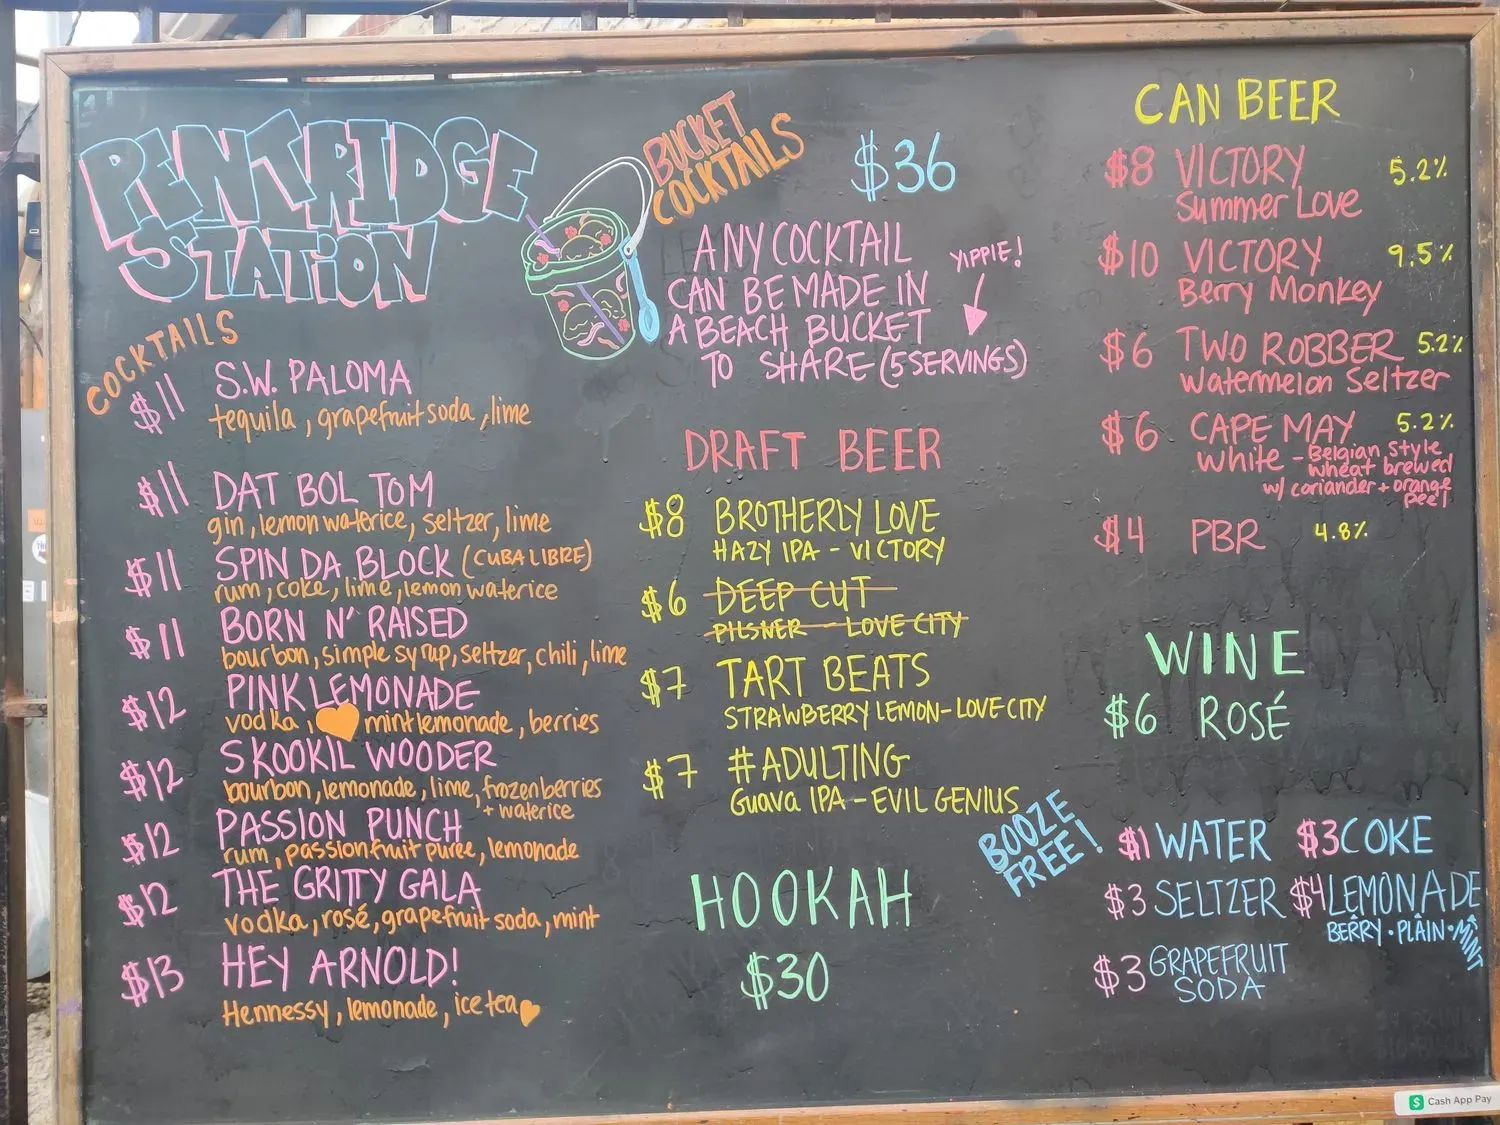 PENTRIDGE
STATION
COCKTAILS
$11 S.W. PALOMA
tequila, grapefruit soda, lime
$11 DAT BOL TOM
gin, lemon waterice, seltzer, lime
$11 SPIN DA BLOCK (CUBA LIBRE)
rum, coke, lime, lemon waterice
$11 BORN N' RAISED
bourbon, simple syrup, seltzer, chili, lime
$12 PINK LEMONADE
vodka, mint lemonade, berries
$12 SKOOKIL WOODER
bourbon, lemonade, lime, frozen berries
+ waterice
$12 PASSION PUNCH
rum, passionfruit puree, lemonade
$12 THE GRITTY GALA
vodka, rosé, grapefruit soda, mint
$13 HEY ARNOLD!
Hennessy, lemonade, ice tea
BUCKET
COCKTAILS
$36
ANY COCKTAIL
CAN BE MADE IN
A BEACH BUCKET
TO SHARE (5 SERVINGS)
YIPPIE!
DRAFT BEER
$8 BROTHERLY LOVE
HAZY IPA - VICTORY
$6 DEEP CUT
PILSNER - LOVE CITY
$7 TART BEATS
STRAWBERRY LEMON - LOVE CITY
$7 #ADULTING
Guava IPA - EVIL GENIUS
HOOKAH
$30
CAN BEER
$8 VICTORY 5.2%
Summer Love
$10 VICTORY 9.5%
Berry Monkey
$6 TWO ROBBER 5.2%
Watermelon Seltzer
$6 CAPE MAY 5.2%
White - Belgian style
wheat brewed
w/ coriander + orange
peel
$4 PBR 4.8%
WINE
$6 ROSÉ
BOOZE
FREE!
$1 WATER $3 COKE
$3 SELTZER $4 LEMONADE
BERRY • PLAIN • MINT
$3 GRAPEFRUIT
SODA
Cash App Pay